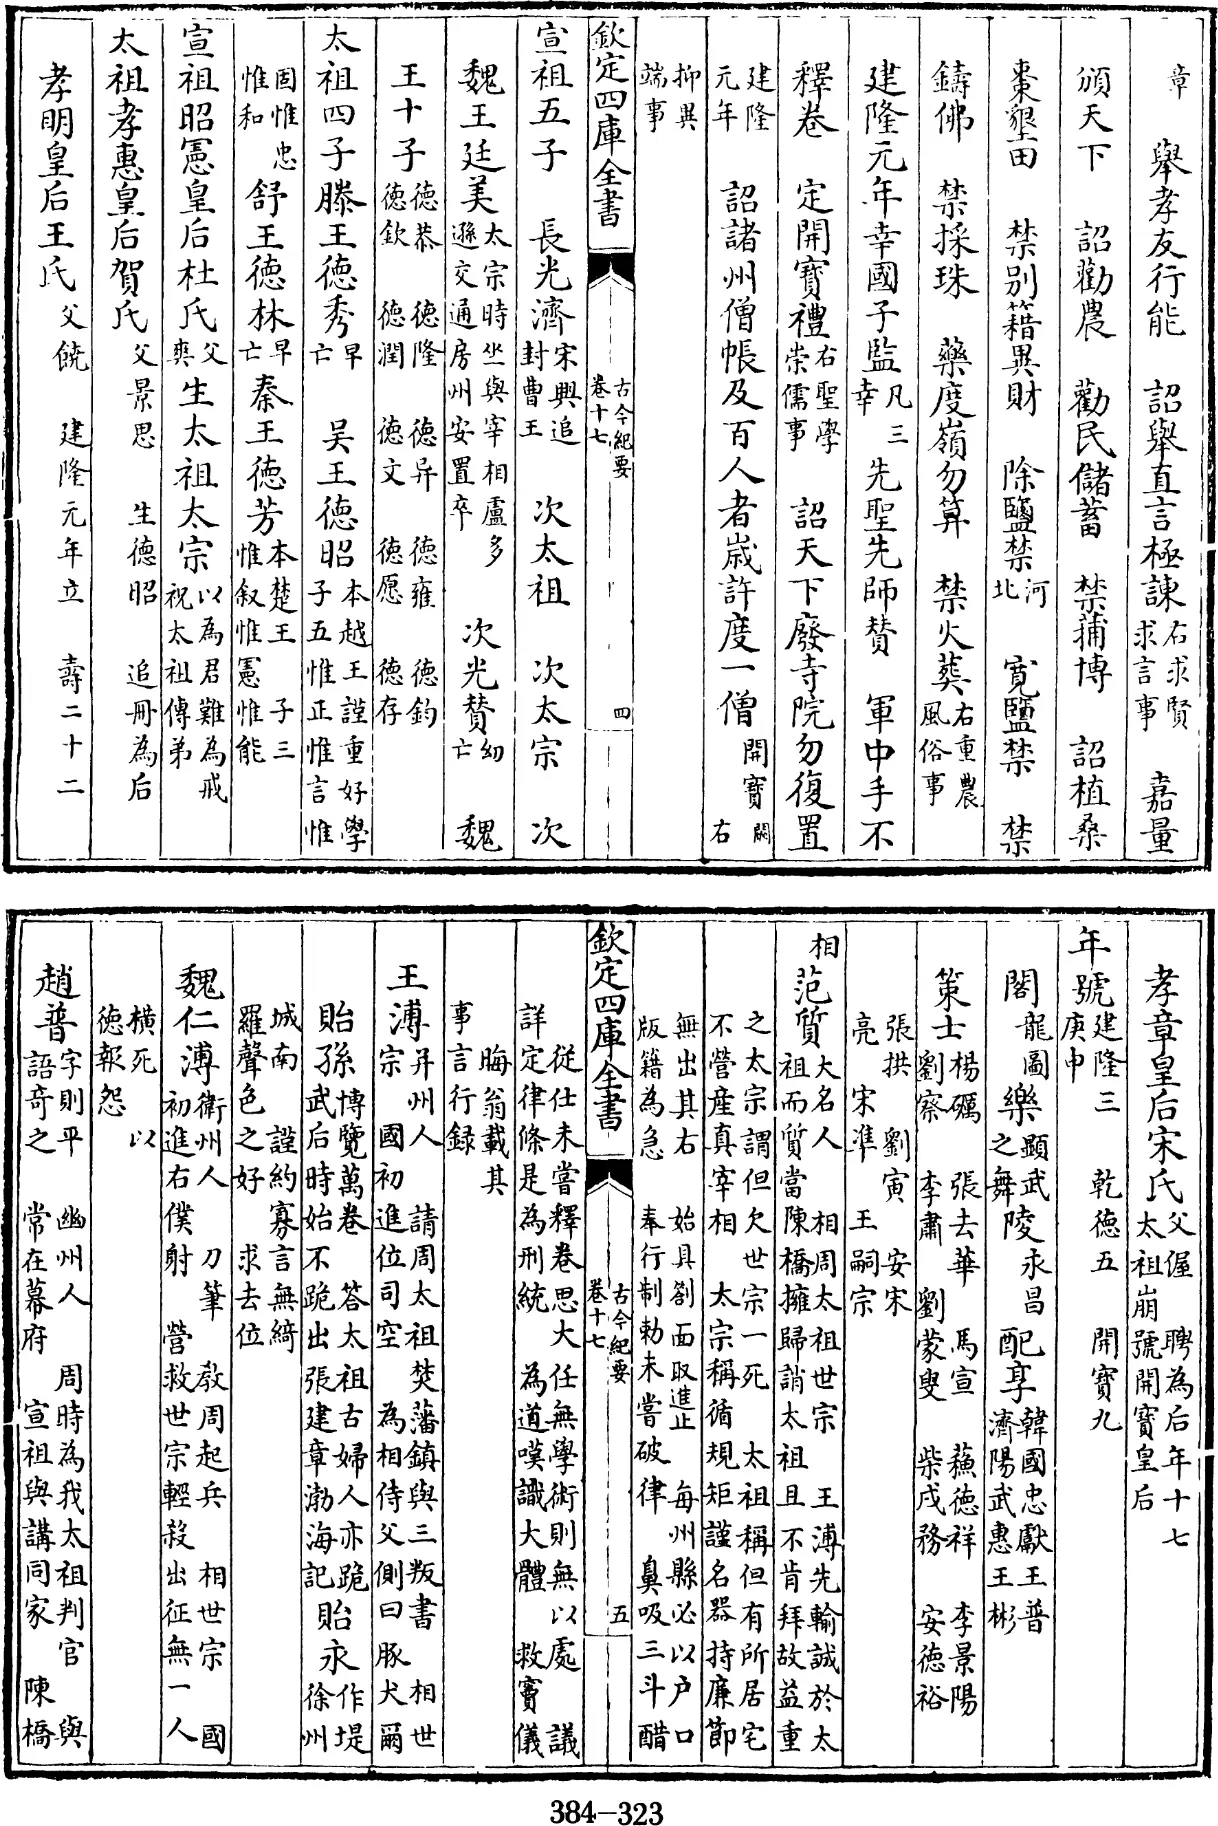 章　舉孝友行能　詔舉直言極諫求言事右求賢　嘉量
頒天下　詔勸農　勸民儲蓄　禁蒱博　詔植桑
棗墾田　禁别籍異財　除鹽禁河北　寛鹽禁　禁
鑄佛　禁採珠　藥度嶺勿算　禁火葬右重農風俗事
建隆元年幸國子監凡三幸　先聖先師賛　軍中手不
釋卷　定開寳禮右聖學崇儒事　詔天下廢寺院勿復置
建隆元年　詔諸州僧帳及百人者歳許度一僧開寳闕右
抑異端事
欽定四庫全書　古今紀要卷十七　四
宣祖五子　長光濟宋興追封曹王　次太祖　次太宗　次
魏王廷美太宗時坐與宰相盧多遜交通房州安置卒　次光贊幼亡　魏
王十子德恭　德隆　德彞　德雍　德鈞德欽　德潤　德文　德愿　德存
太祖四子滕王德秀早亡　吴王德昭本越王謚重好學子五惟正惟言惟
固惟忠惟和舒王德林早亡秦王德芳本楚王　子三惟叙惟憲惟能
宣祖昭憲皇后杜氏父爽生太祖太宗以為君難為戒祝太祖傳弟
太祖孝惠皇后賀氏父景思　生德昭　追冊為后
孝明皇后王氏父饒　建隆元年立　壽二十二
孝章皇后宋氏父偓　聘為后年十七太祖崩號開寳皇后
年號建隆三庚申　乾德五　開寳九
閣龍圖樂顯武陵之舞　永昌　配享韓國忠獻王普濟陽武惠王彬
策士楊礪　張去華　馬宣　蘓德祥　李景陽劉察　李肅　劉蒙叟　柴成務　安德裕
張拱　劉寅　安宋亮　宋準　王嗣宗
相范質大名人　相周太祖世宗　王溥先輸誠於太祖而質當陳橋擁歸誚太祖且不肯拜故益重
之太宗謂但欠世宗一死　太祖稱但有所居宅不營産真宰相　太宗稱循規矩謹名器持廉節
無出其右　始具劄面取進止　每州縣必以户口版籍為急　奉行制勅未嘗破律　鼻吸三斗醋
欽定四庫全書　古今紀要卷十七　五
從仕未嘗釋卷思大任無學術則無以處　議詳定律條是為刑統　為道嘆識大體　救竇儀
晦翁載其事言行録
王溥并州人　請周太祖焚藩鎮與三叛書　相世宗　國初進位司空　為相侍父側曰豚犬爾
貽孫博覽萬卷　答太祖古婦人亦跪武后時始不跪出張建章渤海記貽永作堤徐州
城南　謹約寡言無綺羅聲色之好　求去位
魏仁溥衛州人　刀筆　教周起兵　相世宗　國初進右僕射　營救世宗輕殺出征無一人
横死　以德報怨
趙普字則平　幽州人　周時為我太祖判官　與語奇之　常在幕府　宣祖與講同家　陳橋
384-323